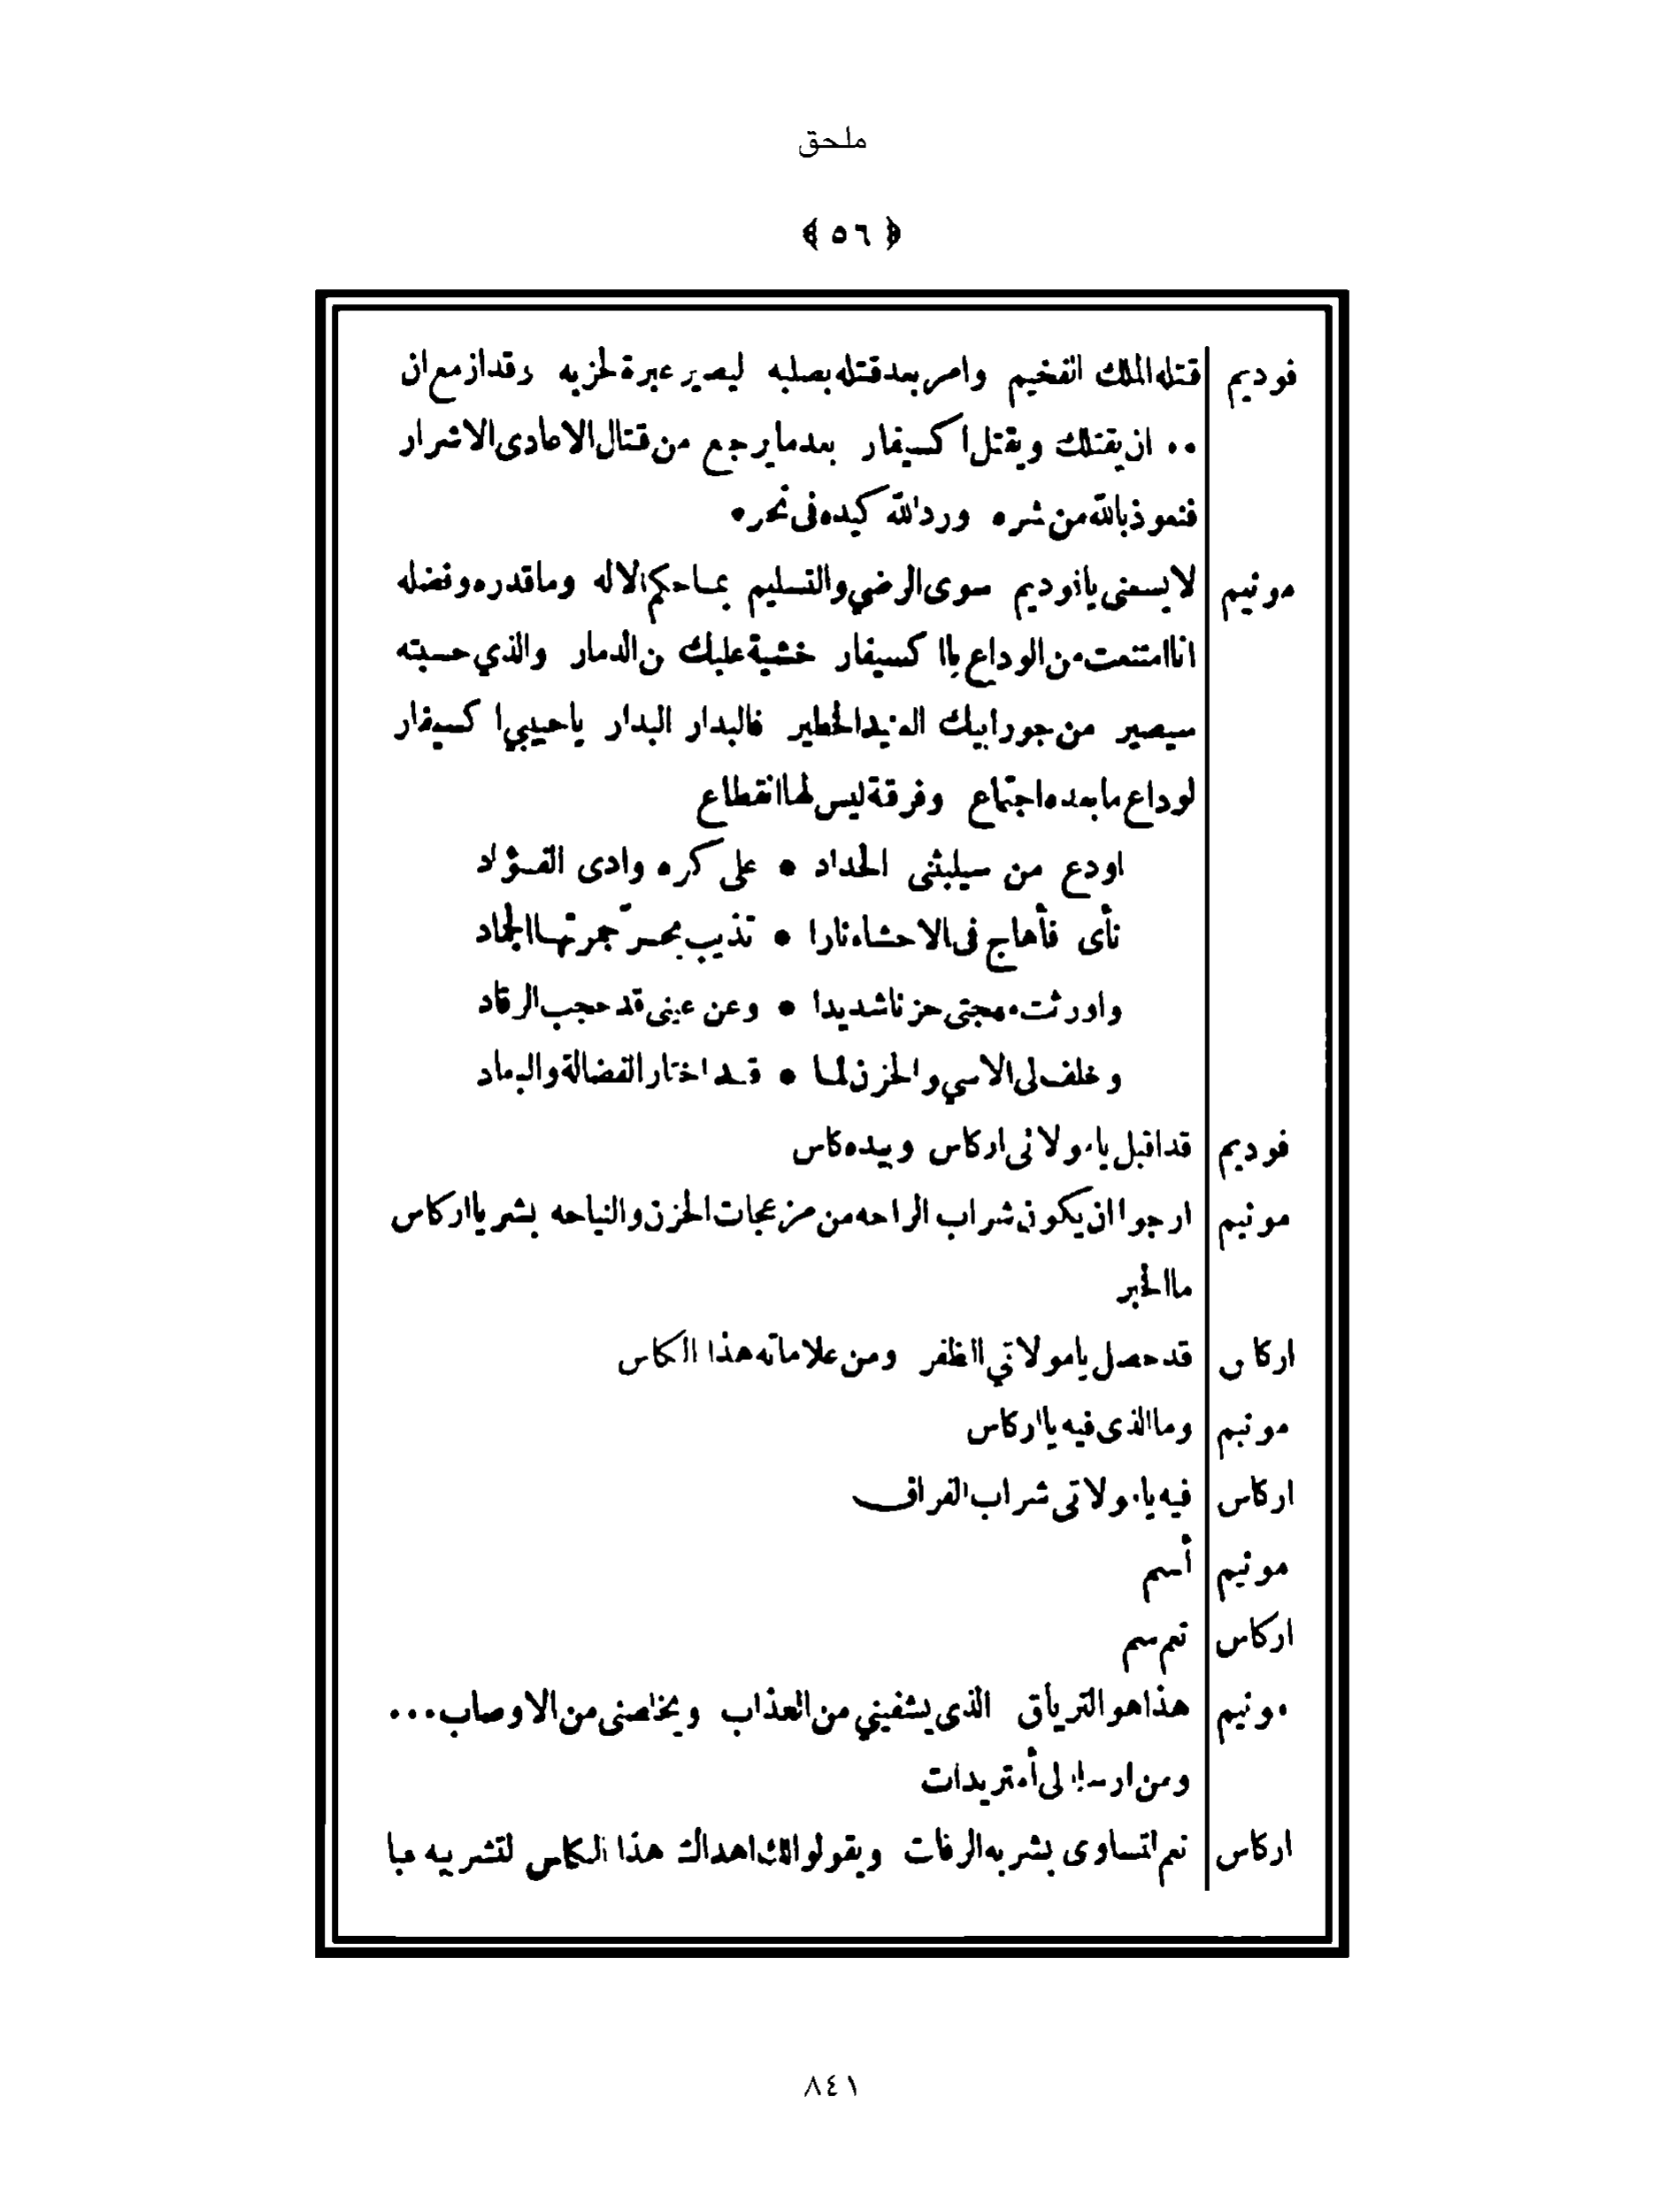 ملحق
﴿ ٥٦ ﴾
فوديم قتله الملك الفخيم وامر بعد قتله بصلبه ليصير عبرة لحزبه وقد ازمع ان
٠٠ ان يقتلك ويقتل اكسيفار بعد ما يرجع من قتال الاعادى الاشرار
فنعوذ بالله من شره ورد الله كيده فى نحره
مونيم لا يسعنى يا فوديم سوى الرضي والتسليم بما حكم الاله وما قدره وفضله
انا امتنعت من الوداع يا اكسيفار خشية عليك من الدمار والذي حسبته
سيصير من جور ابيك العنيد الخطير فالبدار البدار يا حبيبي اكسيفار
لوداع ما بعده اجتماع وفرقة ليس لها انقطاع
اودع من سيلبثنى الحداد • على كره وادى الفؤاد
نأى فأهاج فى الاحشاء نارا • تذيب بحرّ جمرتها الجماد
واورثت مهجتى حزنا شديدا • وعن عينى قد حجب الرقاد
وخلف لى الاسي والحزن لما • قد اختار الفضالة والبعاد
فوديم قد اقبل يا مولاتى اركاس وبيده كاس
مونيم ارجوا ان يكون شراب الراحه من مزعجات الحزن والنياحه بشر يا اركاس
ما الخبر
اركاس قد حصل يا مولاتي الظفر ومن علاماته هذا الكاس
مونيم وما الذى فيه يا اركاس
اركاس فيه يا مولاتى شراب الفراق
مونيم أسم
اركاس نعم سم
مونيم هذا هو الترياق الذى يشفيني من العذاب ويخلصنى من الاوصاب...
ومن ارسله لى أمتريدات
اركاس نعم لتساوى بشربه الرفات ويقول والدك اهداك هذا الكاس لتشربيه
٨٤١